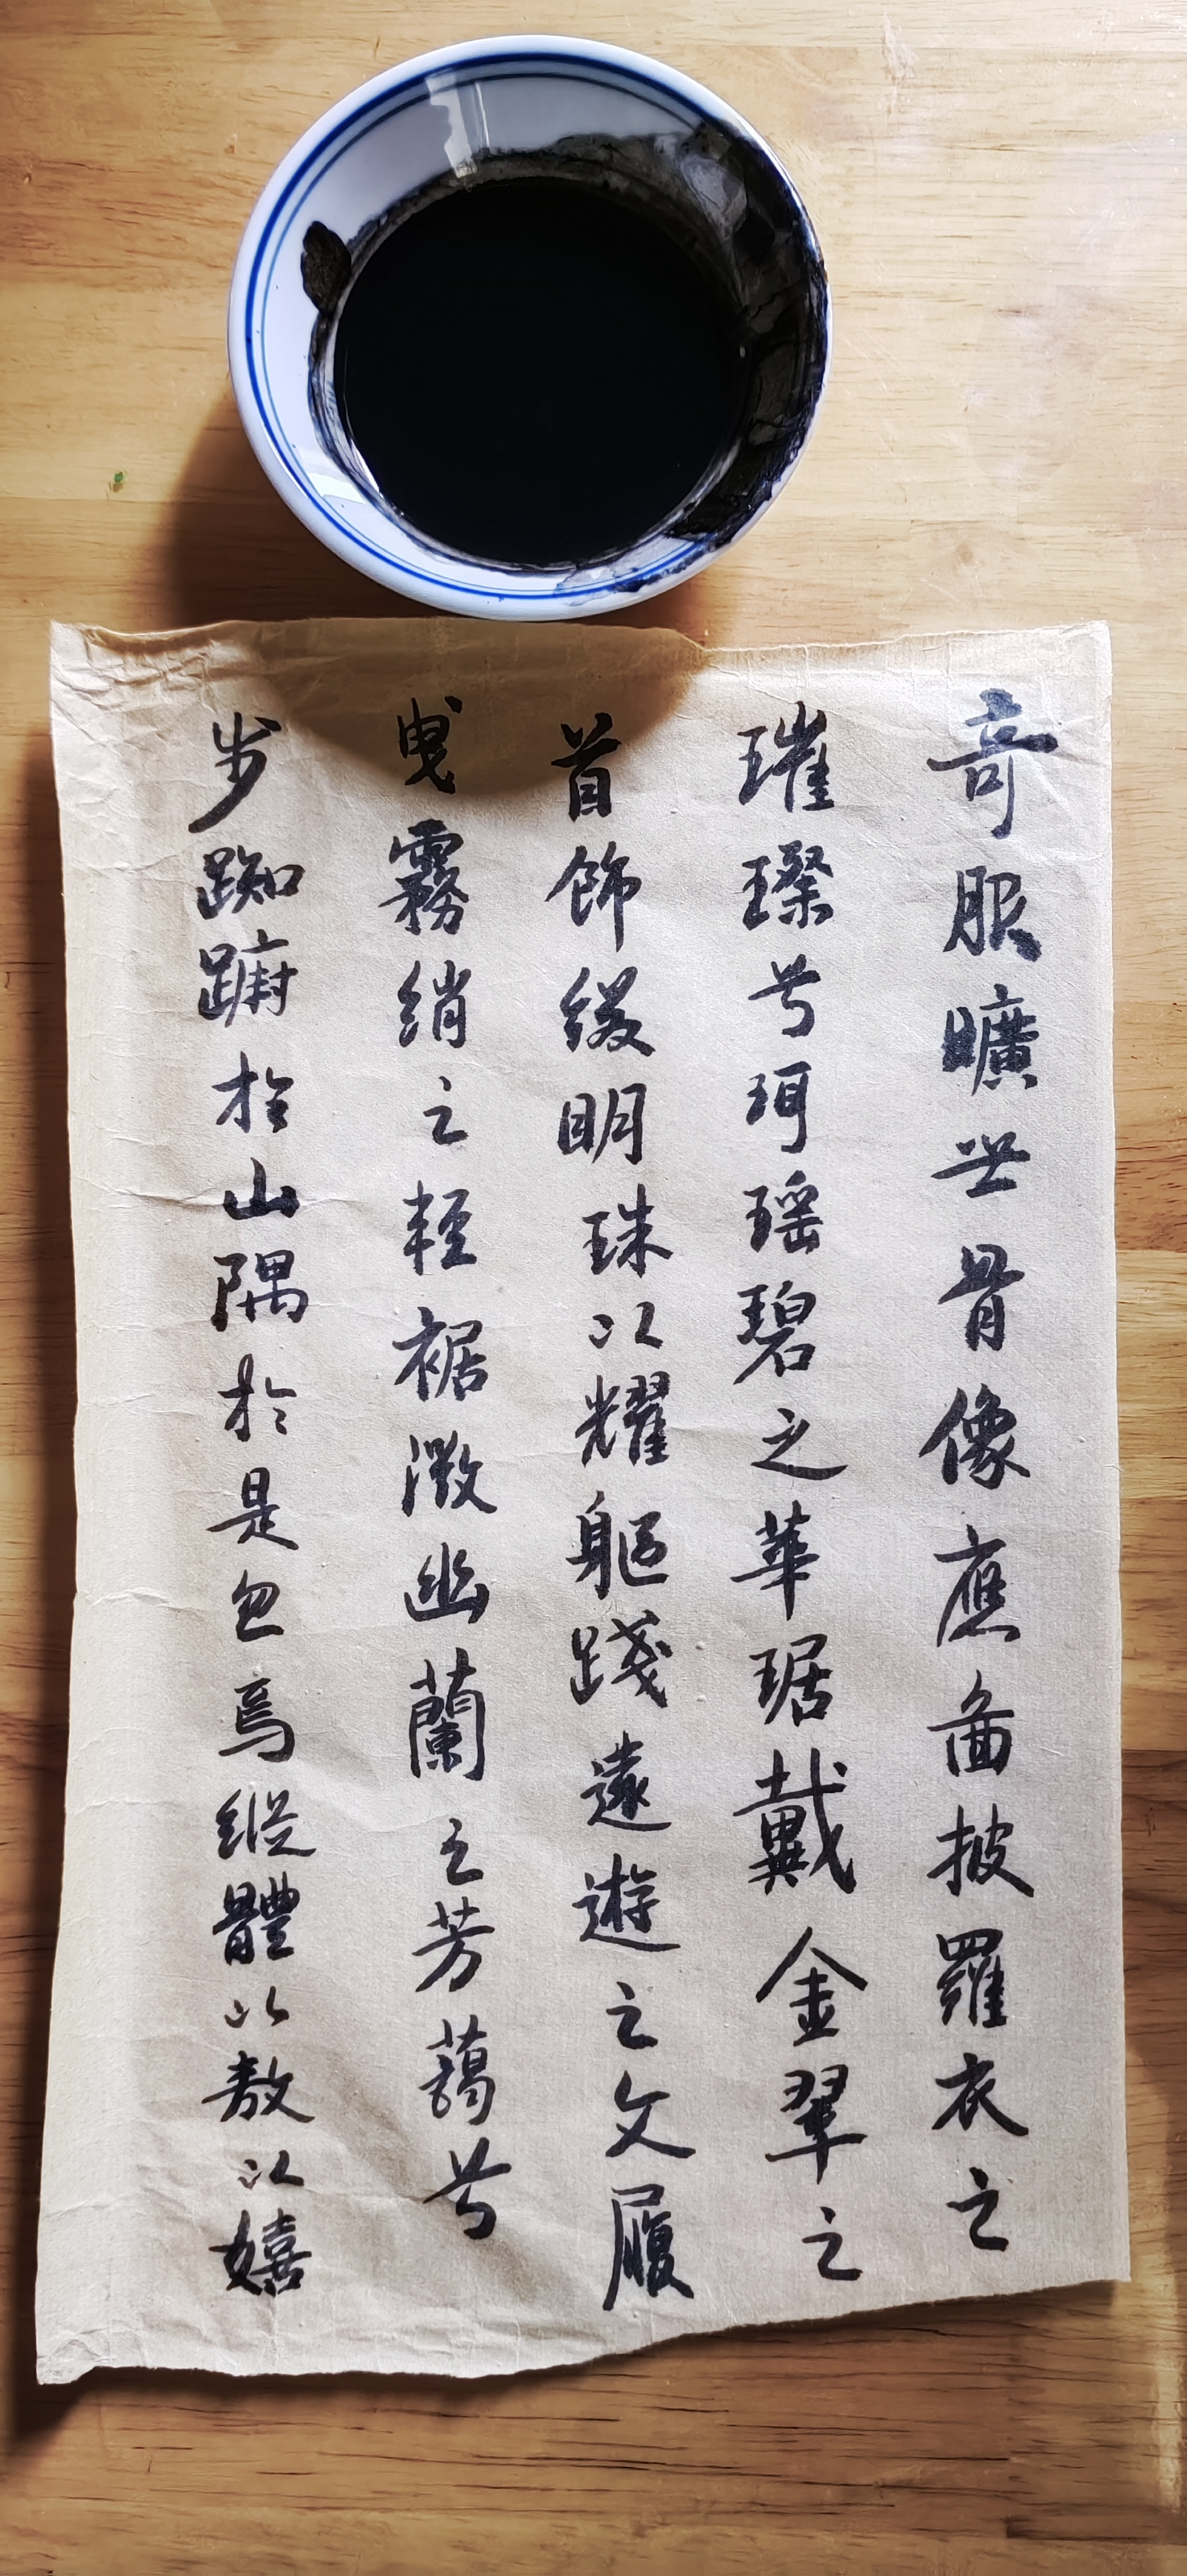 奇服曠世骨像應圖披羅衣之
璀璨兮珥瑤碧之華琚戴金翠之
首飾綴明珠以耀軀踐遠遊之文履
曳霧綃之輕裾微幽蘭之芳藹兮
步踟躕於山隅於是忽焉縱體以敖以嬉